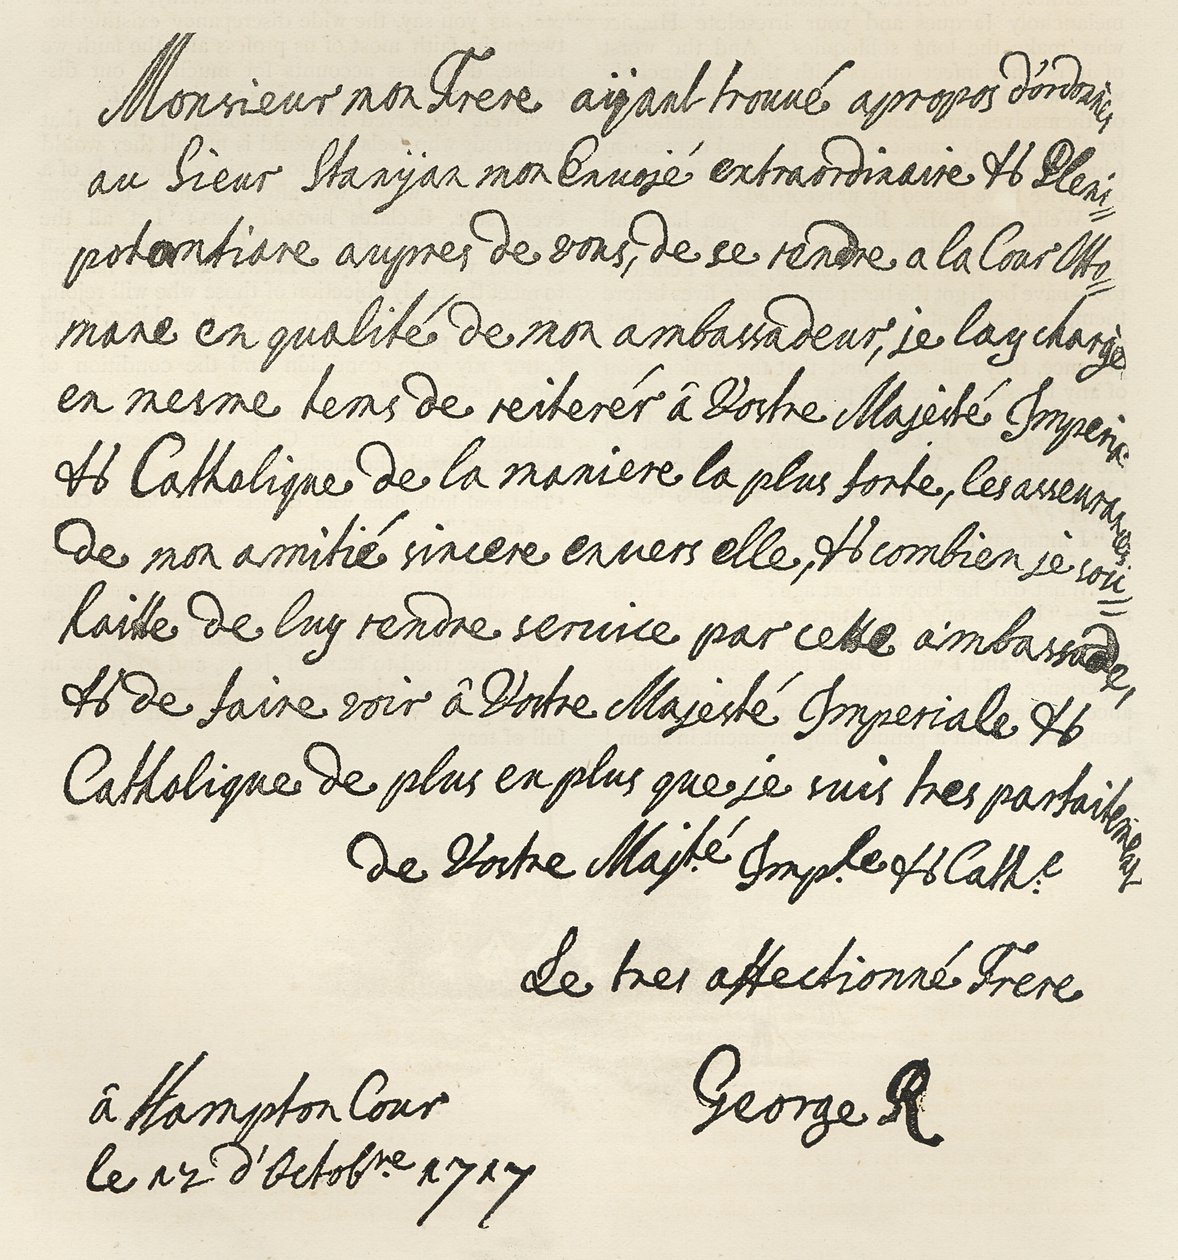 Monsieur mon Frere aijant trouvé apropos d'ordonner
au Sieur Stanijan mon Envojé extraordinaire & Pleni=
potentiare aupres de vous, de se rendre a la Cour Otto=
mane en qualité de mon ambassadeur, je lay chargé
en mesme tems de reiterér â Vostre Majesté Imperia:
& Catholique de la maniere la plus forte, les asseurances
de mon amitié sincere envers elle, & combien je sou=
haitte de luy rendre service par cette ambassade,
& de faire voir â Vostre Majesté Imperiale &
Catholique de plus en plus que je suis tres parfaitement
de Vostre Majté Imp.le & Cath.e
Le tres affectionné Frere
George R
â Hampton Cour
le 12 d'Octobre 1717